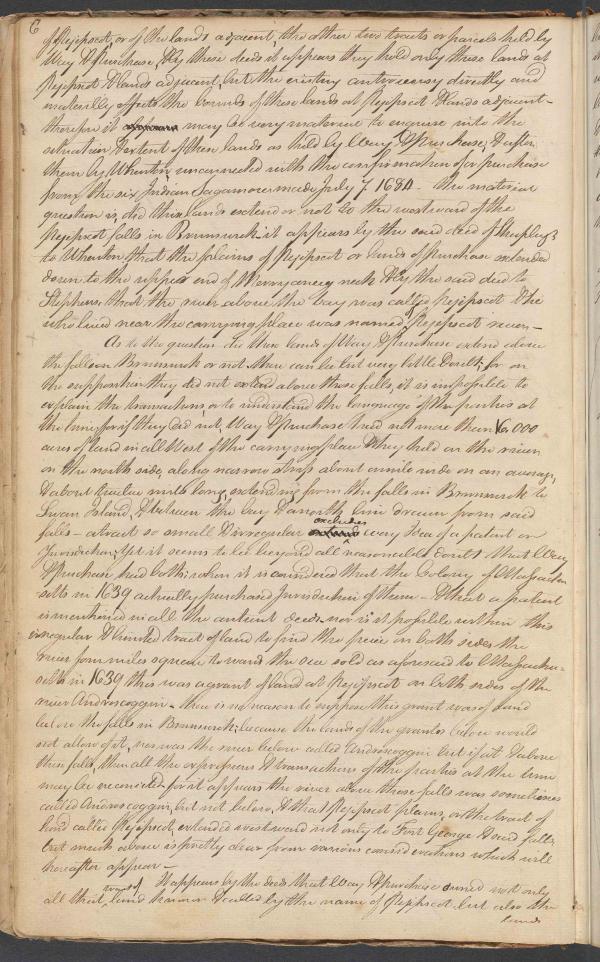 6
of Pejepscot, or of the lands adjacent, the other two tracts or parcels held by
Way & Purchase, & by these deeds it appears they held only these lands at
Pejepscot & lands adjacent, but the existing controversy directly and
materially affects the bounds of these lands at Pejepscot & lands adjacent—
therefore it may be very material to enquire into the
situation & extent of these lands as held by Way & Purchase, & after
them by Wharton unconnected with the confirmation of or purchase
from the six Indian Sagamores made July 7 1684 — the material
question is, did these lands extend or not to the westward of the
Pejepscot falls in Brunswick— it appears by the said deed of
to Wharton that the plains of Pejepscot or lands of Purchase extended
down to the upper end of Merryconeag neck & by the said deed to
Stephens that the river above the bay was called Pejepscot & the
who lived near the carrying place was named of Pejepscot river—
As to the question did these lands of Way & Purchase extend above
the falls in Brunswick or not there can be but very little Doubt; for on
the supposition they did not extend above these falls, it is impossible to
explain the transactions, or to understand the language of the parties at
the time, for if they did not, Way & Purchase had not more than 16,000
acres of land in all West of the carrying place & they held on the river
on the north side, along narrow strip about a mile wide on an average,
& about twelve miles long, extending from the falls in Brunswick to
Swan Island, & between the bay & a north line drawn from said
falls— a tract so small & irregular excludes every Idea of a patent or
Jurisdiction; Yet it seems to be beyond all reasonable doubt that Way
& Purchase had both; when it is considered that the Colony of Massachu-
setts in 1639 actually purchased Jurisdiction of them— & that a patent
is mentioned in all the antient deeds nor is it possible within this
irregular & limited tract of land to find the peice on both sides the
river four miles square towards the sea sold as aforesaid to Massachu-
setts in 1639 this was a grant of land at Pejepscot on both sides of the
river Androscoggin— there is no reason to suppose this grant was of land
below the falls in Brunswick; because the lands of the grantee below would
not allow of it, nor was the river below called Androscoggin but if it was above
these falls, then all the expressions & transactions of the parties at the time
may be reconciled— for it appears the river above these falls was sometimes
called Androscoggin, but not below, & that Pejepscot plains, or the tract of
land called Pejepscot, extended westward not only to Fort George & said falls,
but much above is pretty clear from various considerations which will
thereafter appear—
It appears by the deeds that Way & Purchase owned not only
all that tract of land known & called by the name of Pejepscot but also the
lands